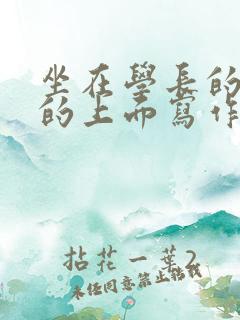 坐在學長的
的上面寫作
拈花一葉2
未经同意禁止转载